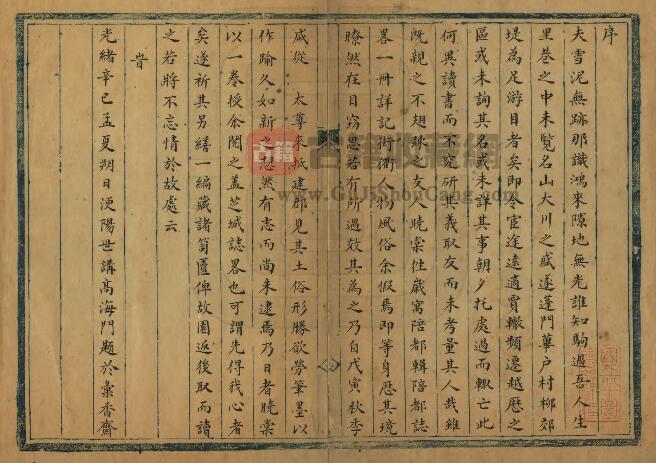 序
夫雪泥無跡那識鴻來隙地無光誰知駒過吾人生
里巷之中未覧名山大川之盛遂蓬門蓽戸村柳郊
堤為足游目者矣即令宦途遠適賈轍頻遷越歴之
區或未詢其名或未詳其事朝夕托處過而輙亡此
何異讀書而不究研其義取友而未考量其人哉雖
既親之不翅踈之友人曉棠徃歳寓陪都輯陪都誌
畧一冊詳記街衢人物風俗余假焉即等身歴其境
瞭然在目竊思若有所過效其為之乃自戊寅秋季
咸從　太尊來牧建郡見其土俗形勝欲勞筆墨以
作踰久如新之　忽然有志而尚未逮焉乃日者曉棠
以一巻授余閲之蓋芝城誌畧也可謂先得我心者
矣遂祈其另繕一編藏諸笥匱俾故園返後取而讀
之若將不忘情於故處云
旹
光緒辛巳孟夏朔日浭陽世講髙海門題於彙香齋
古籍
古籍收藏網
www.GujiShouCang.com